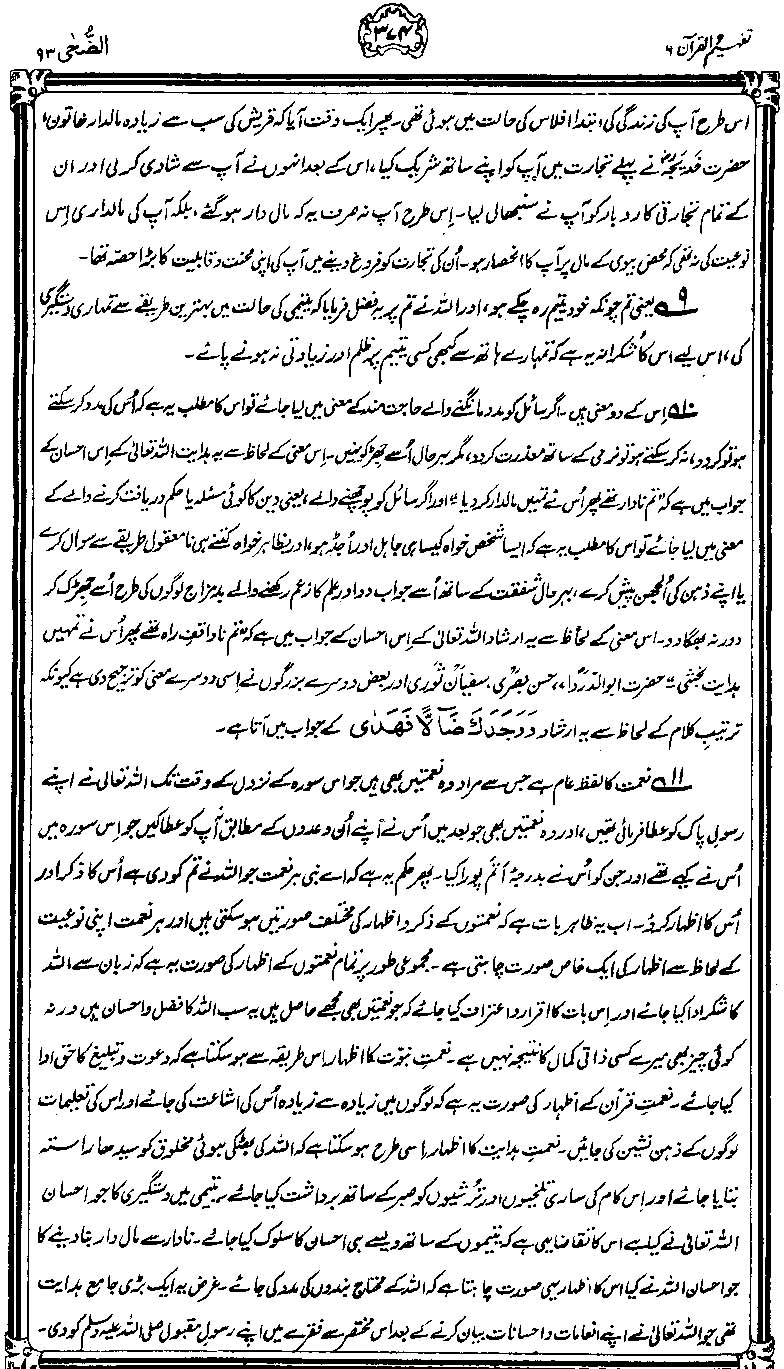 تفہیم القرآن ۶
۳۷۴
الضُّحٰی ۹۳
اس طرح آپ کی زندگی کی ابتدا افلاس کی حالت میں ہوئی تھی۔ پھر ایک وقت آیا کہ قریش کی سب سے زیادہ مالدار خاتون،
حضرت خدیجہؓ نے پہلے تجارت میں آپ کو اپنے ساتھ شریک کیا، اس کے بعد انہوں نے آپ سے شادی کر لی اور ان
کے تمام تجارتی کاروبار کو آپ نے سنبھال لیا۔ اِس طرح آپ نہ صرف یہ کہ مال دار ہو گئے، بلکہ آپ کی مالداری اِس
نوعیت کی نہ تھی کہ محض بیوی کے مال پر آپ کا انحصار ہو۔ اُن کی تجارت کو فروغ دینے میں آپ کی اپنی محنت و قابلیت کا بڑا حصہ تھا۔
۹ یعنی تم چونکہ خود یتیم رہ چکے ہو، اور اللہ نے تم پر یہ فضل فرمایا کہ یتیمی کی حالت میں بہترین طریقے سے تمہاری دستگیری
کی، اس لیے اس کا شکرانہ یہ ہے کہ تمہارے ہاتھ سے کبھی کسی یتیم پر ظلم اور زیادتی نہ ہونے پائے۔
۱۰ اِس کے دو معنی ہیں۔ اگر سائل کو مدد مانگنے والے حاجت مند کے معنی میں لیا جائے تو اس کا مطلب یہ ہے کہ اُس کی مدد کر سکتے
ہو تو کر دو، نہ کر سکتے ہو تو نرمی کے ساتھ معذرت کر دو، مگر بہرحال اُسے جھڑکو نہیں۔ اِس معنی کے لحاظ سے یہ ہدایت اللہ تعالیٰ کے اِس احسان کے
جواب میں ہے کہ "تم نادار تھے پھر اُس نے تمہیں مالدار کر دیا"۔ اور اگر سائل کو پوچھنے والے، یعنی دین کا کوئی مسئلہ یا حکم دریافت کرنے والے کے
معنی میں لیا جائے تو اس کا مطلب یہ ہے کہ ایسا شخص خواہ کیسا ہی جاہل اور اُجڈ ہو، اور بظاہر خواہ کتنے ہی نامعقول طریقے سے سوال کرے
یا اپنے ذہن کی اُلجھن پیش کرے، بہرحال شفقت کے ساتھ اُسے جواب دو اور علم کا زعم رکھنے والے بدمزاج لوگوں کی طرح اُسے جھڑک کر
دور نہ بھگا دو۔ اس معنی کے لحاظ سے یہ ارشاد اللہ تعالیٰ کے اِس احسان کے جواب میں ہے کہ "تم ناواقفِ راہ تھے پھر اُس نے تمہیں
ہدایت بخشی"۔ حضرت ابوالدرداءؓ، حسن بصریؒ، سفیان ثوریؒ اور بعض دوسرے بزرگوں نے اِسی دوسرے معنی کو ترجیح دی ہے کیونکہ
ترتیب کلام کے لحاظ سے یہ ارشاد وَوَجَدَكَ ضَآلًّا فَهَدٰى کے جواب میں آتا ہے۔
۱۱ نعمت کا لفظ عام ہے جس سے مراد وہ نعمتیں بھی ہیں جو اس سورہ کے نزول کے وقت تک اللہ تعالیٰ نے اپنے
رسولِ پاک کو عطا فرمائی تھیں، اور وہ نعمتیں بھی جو بعد میں اُس نے اپنے اُن وعدوں کے مطابق آپ کو عطا کیں جو اِس سورہ میں
اُس نے کیے تھے اور جن کو اُس نے بدرجۂ اتم پورا کیا۔ پھر حکم یہ ہے کہ اے نبی ہر نعمت جو اللہ نے تم کو دی ہے اُس کا ذکر اور
اُس کا اظہار کرو۔ اب یہ ظاہر بات ہے کہ نعمتوں کے ذکر و اظہار کی مختلف صورتیں ہو سکتی ہیں اور ہر نعمت اپنی نوعیت
کے لحاظ سے اظہار کی ایک خاص صورت چاہتی ہے۔ مجموعی طور پر تمام نعمتوں کے اظہار کی صورت یہ ہے کہ زبان سے اللہ
کا شکر ادا کیا جائے اور اِس بات کا اقرار و اعتراف کیا جائے کہ جو نعمتیں بھی مجھے حاصل ہیں یہ سب اللہ کا فضل و احسان ہیں ورنہ
کوئی چیز بھی میرے کسی ذاتی کمال کا نتیجہ نہیں ہے۔ نعمتِ نبوت کا اظہار اِس طریقہ سے ہو سکتا ہے کہ دعوت و تبلیغ کا حق ادا
کیا جائے۔ نعمتِ قرآن کے اظہار کی صورت یہ ہے کہ لوگوں میں زیادہ سے زیادہ اُس کی اشاعت کی جائے اور اس کی تعلیمات
لوگوں کے ذہن نشین کی جائیں۔ نعمتِ ہدایت کا اظہار اِسی طرح ہو سکتا ہے کہ اللہ کی بھٹکی ہوئی مخلوق کو سیدھا راستہ
بتایا جائے اور اِس کام کی ساری تلخیوں اور ترُشیوں کو صبر کے ساتھ برداشت کیا جائے۔ یتیمی میں دستگیری کا جو احسان
اللہ تعالیٰ نے کیا ہے اس کا تقاضا یہی ہے کہ یتیموں کے ساتھ ویسے ہی احسان کا سلوک کیا جائے۔ نادار سے مال دار بنا دینے کا
جو احسان اللہ نے کیا اس کا اظہار یہی صورت چاہتا ہے کہ اللہ کے محتاج بندوں کی مدد کی جائے۔ غرض یہ ایک بڑی جامع ہدایت
تھی جو اللہ تعالیٰ نے اپنے انعامات و احسانات بیان کرنے کے بعد اس مختصر سے فقرے میں اپنے رسولِ مقبول صلی اللہ علیہ وسلم کو دی۔